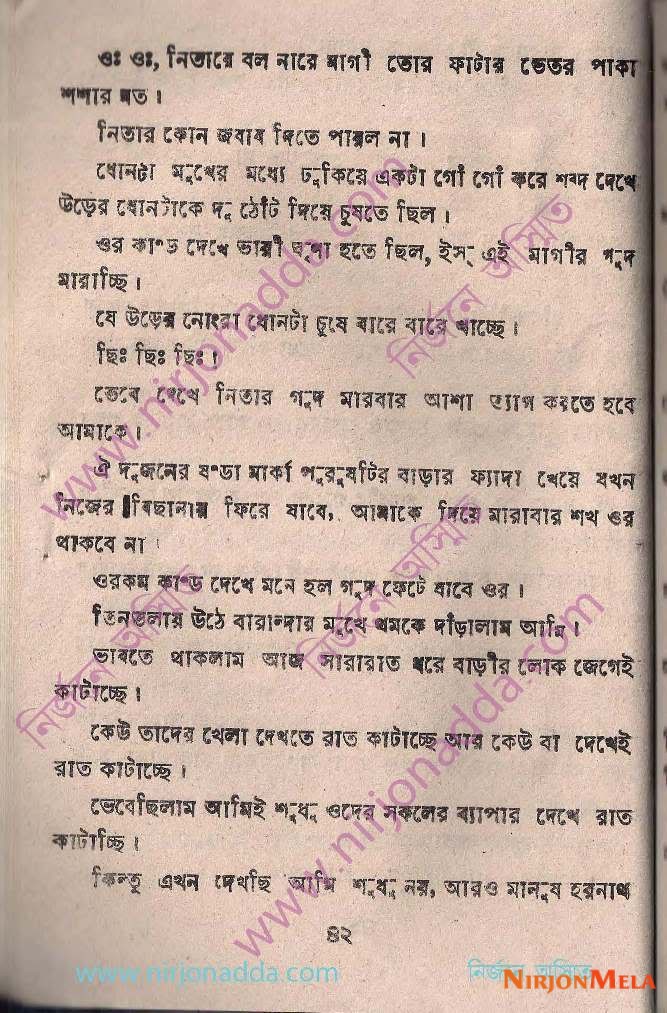 ওঃ ওঃ, নিতারে বল নারে মাগী তোর ফাটার ভেতর পাকা
শশার মত।
নিতার কোন জবাব দিতে পারল না।
ধোনটা মুখের মধ্যে ঢুকিয়ে একটা গোঁ গোঁ করে শব্দ দেখে
উড়ের ধোনটাকে দু ঠোঁট দিয়ে চুষতে ছিল।
ওর কাণ্ড দেখে ভারী ঘৃণা হতে ছিল, ইস্ এই মাগীর গুদ
মারাচ্ছি।
যে উড়ের নোংরা ধোনটা চুষে বারে বারে খাচ্ছে।
ছিঃ ছিঃ ছিঃ।
ভেবে দেখে নিতার গুদ মারবার আশা ত্যাগ করতে হবে
আমাকে।
ঐ দুজনের ষণ্ডা মার্কা পুরুষটির বাড়ার ফ্যাদা খেয়ে যখন
নিজের বিছানায় ফিরে যাবে, আমাকে দিয়ে মারাবার শখ ওর
থাকবে না।
ওরকম কাণ্ড দেখে মনে হল গুদ ফেটে যাবে ওর।
তিনতলায় উঠে বারান্দার মুখে থমকে দাঁড়ালাম আমি।
ভাবতে থাকলাম আজ সারারাত ধরে বাড়ীর লোক জেগেই
কাটাচ্ছে।
কেউ তাদের খেলা দেখতে রাত কাটাচ্ছে আর কেউ বা দেখেই
রাত কাটাচ্ছে।
ভেবেছিলাম আমিই শুধু ওদের সকলের ব্যাপার দেখে রাত
কাটাচ্ছি।
কিন্তু এখন দেখছি আমি শুধু নয়, আরও মানুষ হরনাথ
৪২
www.nirjonadda.com
নির্জনে অস্মিত
NIRJONMELA
www.nirjonadda.com
নির্জনে অস্মিত
নির্জনে অস্মিত
নির্জনে অস্মিত
www.nirjonadda.com